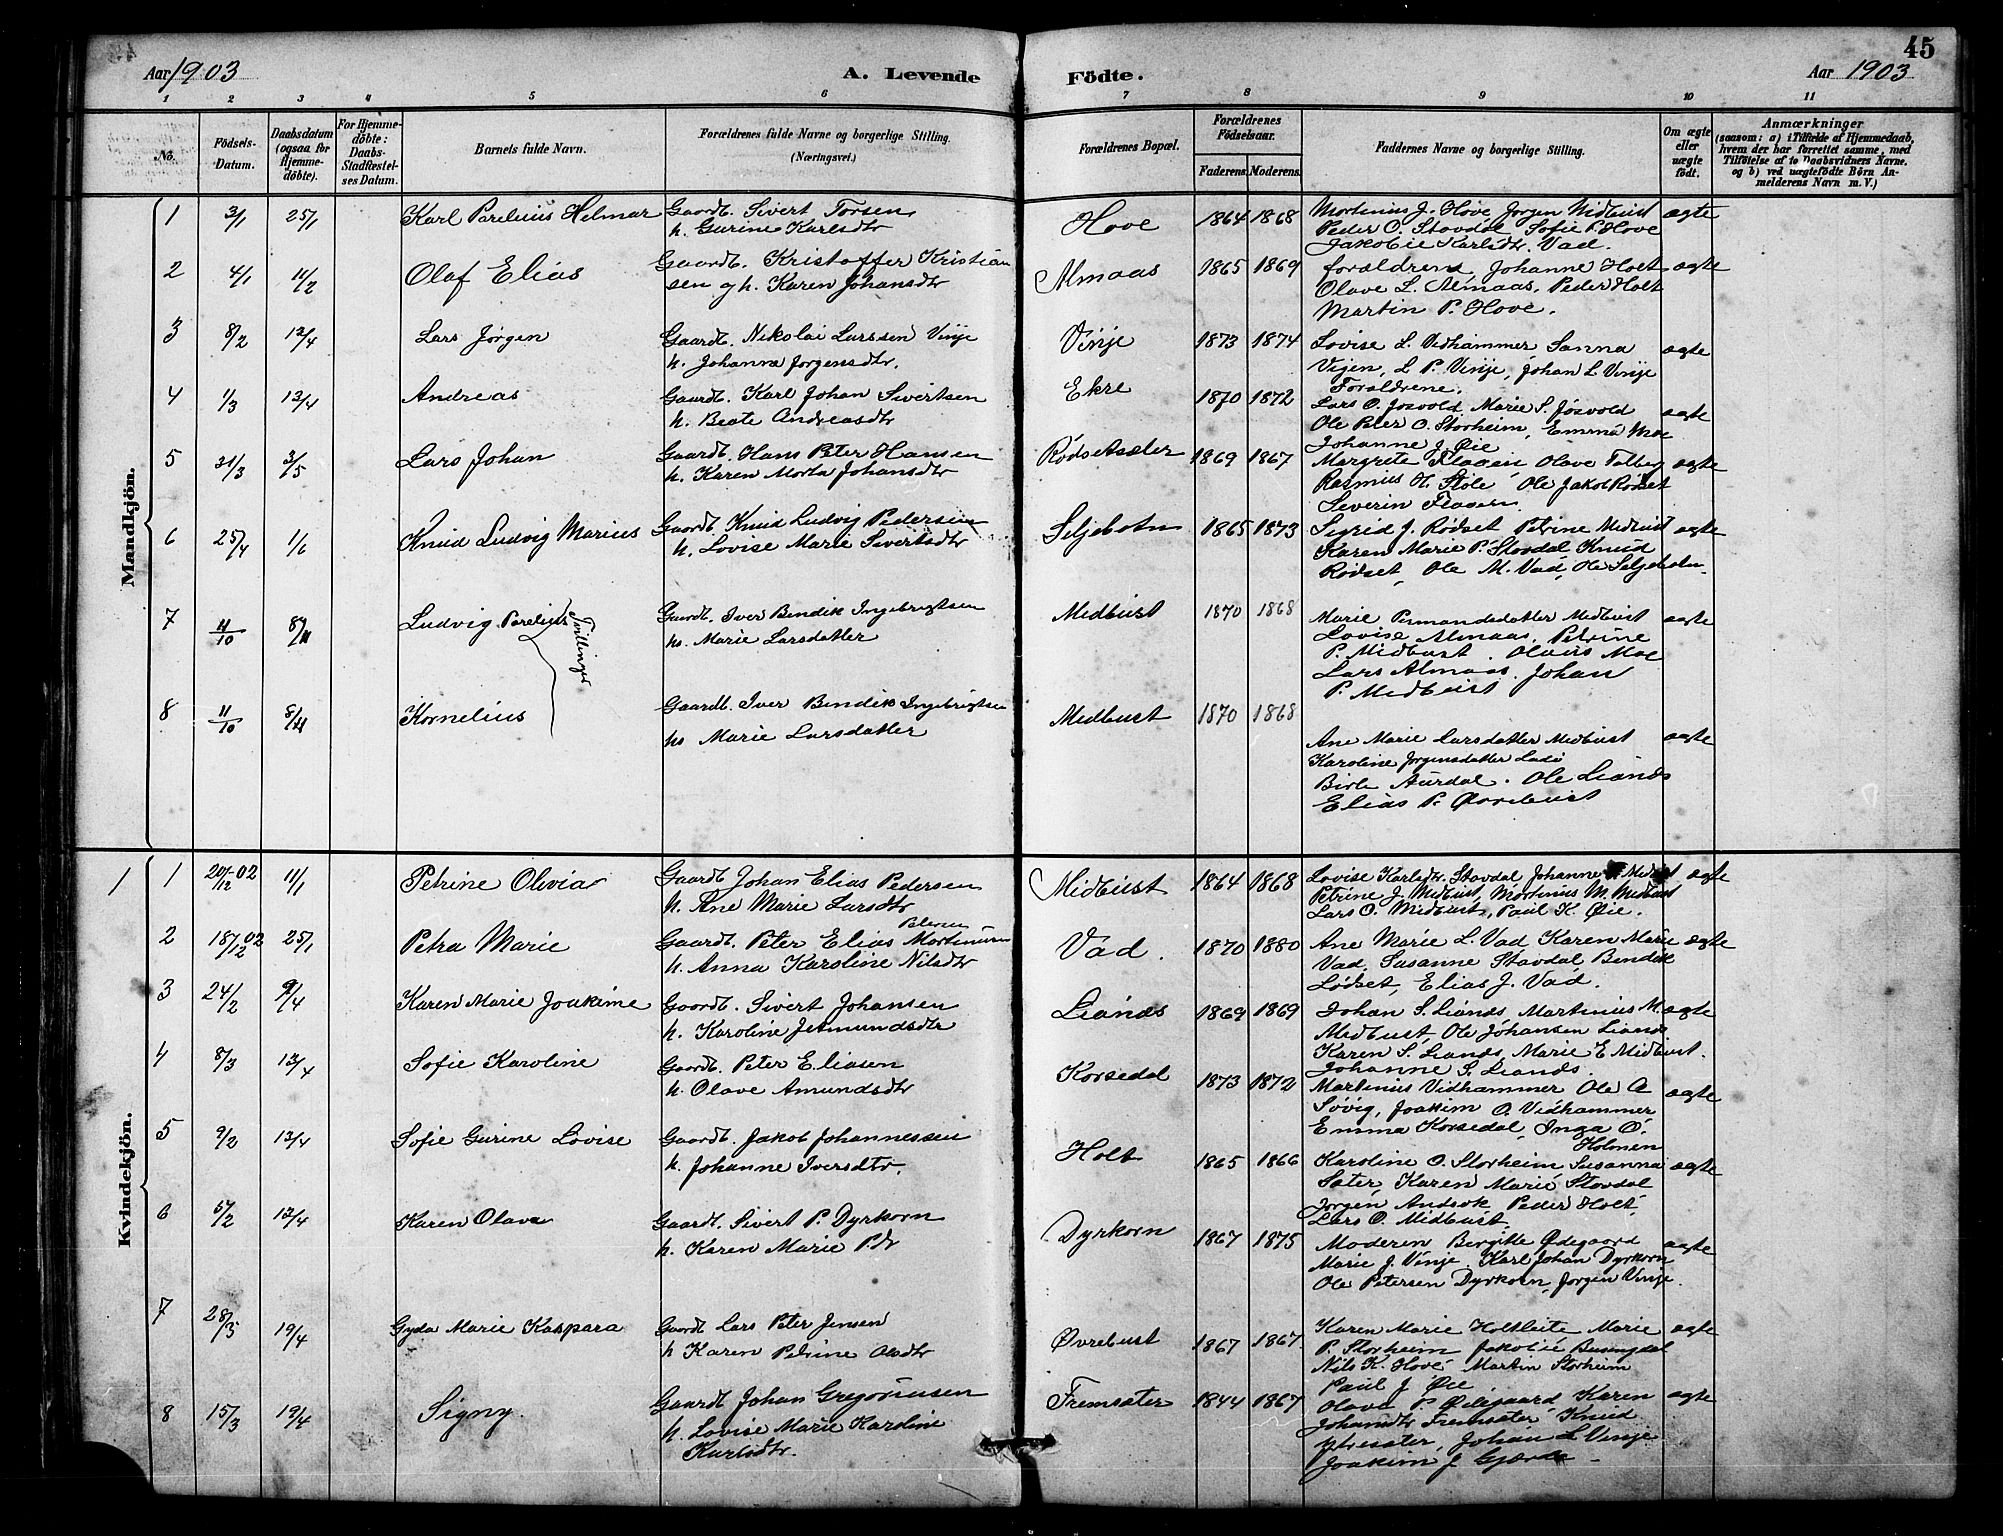 45
Aar 1903 A. Levende Födte. Aar 1903
1 2 3 4 5 6 7 8 9 10 11
No.
Födsels-Datum.
Daabsdatum (ogsaa for Hjemme-döbte).
For Hjemme-döbte: Daabs-Stadfæstel-ses Datum.
Barnets fulde Navn.
Forældrenes fulde Navne og borgerlige Stilling. (Næringsvei.)
Forældrenes Bopæl.
Forældrenes Födselsaar.
Faderens. Moderens.
Faddernes Navne og borgerlige Stilling.
Om ægte eller uægte födt.
Anmærkninger
(saasom: a) i Tilfælde af Hjemmedaab,
hvem der har forrettet samme, med
Tilföielse af to Daabsvidners Navne.
og b) ved uægtefödte Börn An-
melderens Navn m. V.)
Mandkjön.
1 3/1 25/1 Karl Parelius Helmar Gaardb. Sivert Torsen
h. Gurine Karlsdtr
Hove 1864 1868 Mortinus J. Hove, Jorgen Midbust ægte
Peder O. Stavdal Sofie P. Hove
Jakobie Karlsdtr. Vad.
2 4/1 14/2 Olaf Elias Gaardb. Kristoffer Kristian
sen og h. Karen Johansdtr
Almaas 1865 1869 forældrene, Johanne Holt ægte
Olave L. Almaas, Peder Holt
Martin P. Hove.
3 8/2 13/4 Lars Jörgen Gaardb. Nikolai Larssen Vinje
h. Johanna Jorgensdtr.
Vinje 1873 1874 Lovise L. Vidhammer Sanna ægte
Vejen, L. P. Vinje, Johan L. Vinje
Foraldrene.
4 1/3 13/4 Andreas Gaardb. Karl Johan Sivertsen
h. Beate Andreasdtr
Ekre 1870 1872 Lars O. Jøsvold. Marie S. Jøsvold ægte
Ole Peter O. Storheim, Emma Moe
Johanne J. Øie
5 31/3 3/5 Lars Johan Gaardb. Hans Peter Hansen
h. Karen Marta Johansdtr
Rødsetsæter 1869 1867 Margrete Flaaen Olave Talberg ægte
Rasmus H. Støle Ole Jakob Rødset
Severin Flaaen
6 25/4 1/6 Knud Ludvig Marius Gaardb. Knud Ludvig Pedersen
h. Lovise Marie Sivertsdtr
Seljebotn 1865 1873 Sigrid J. Rødset Petrine Midbust ægte
Karen Marie P. Stavdal Knud
Rødset, Ole M. Vad, Ole Seljebotn
7 11/10 8/11 Ludvig Parelius Tvillinger Gaardb. Iver Bendik Ingebrigtsen
hs. Marie Larsdatter
Midbust 1870 1868 Marie Permandsdatter Midbust ægte
Lovise Almaas, Petrine
P. Midbust. Olaus Moe
Lars Almaas, Johan
P. Midbust
8 11/10 8/11 Kornelius Gaardb. Iver Bendik Ingebrigtsen
hs Marie Larsdatter
Midbust 1870 1868
Ane Marie Larsdatter Midbust ægte
Karoline Jorgensdatter
Aurdal. Ole Lianes
Elias P. Øvrebust
Kvindekjön.
1 1 20/12-02 11/1 Petrine Olivia Gaardb Johan Elias Pedersen
h. Ane Marie Larsdtr
Midbust 1864 1868 Lovise Karlsdtr. Stavdal Johanne Midbust ægte
Petrine J. Midbust, Mortinus M. Midbust
Lars O. Midbust, Paul K. Øie.
2 18/12 02 25/1 Petra Marie Petersen
Gaardb. Peter Elias Mortinusen
h. Anna Karoline Nilsdtr
Vad. 1870 1880 Ane Marie L. Vad Karen Marie ægte
Vad, Susanne Stavdal Bendik
Lødset, Elias J. Vad.
3 24/2 9/4 Karen Marie Joakime Gaardb. Sivert Johansen
h. Karoline Jetmundsdtr
Lianes 1869 1869 Johan S. Lianes Martinus M. ægte
Midbust, Ole Johansen Lianes
Karen S. Lianes, Marie E Midbust.
Johanne S. Lianes.
4 8/3 13/4 Sofie Karoline Gaardb. Peter Eliasen
h. Olave Amundsdtr
Korsedal 1873 1872 Martinus Vidhammer Ole A ægte
Søvig, Joakim O. Vidhammer
Emma Korsedal, Inga O.
Holmen
5 9/2 13/4 Sofie Gurine Lovise Gaardb. Jakob Johannessen
h. Johanne Iversdtr.
Holt 1865 1866 Karoline O. Storheim Susanna ægte
Sæter Karen Marie Stavdal
Jorgen Andsok Peder Holt,
Lars O. Midbust,
6 6/2 13/4 Karen Olava Gaardb. Sivert P. Dyrkorn
h. Karen Marie P. dr
Dyrkorn 1867 1875 Moderen Bergitte Ødegaard ægte
Marie J. Vinje Karl Johan Dyrkorn
Ole Petersen Dyrkorn, Jorgen Vinje.
7 28/3 19/4 Gyda Marie Kaspara Gaardb Lars Peter Jensen
h Karen Petrine Olsdtr
Øvrebust 1867 1867 Karen Marie Holtleite Marie ægte
P. Storheim Jakobie
Nils K. Hove Martin Storheim
Paul J Øie
8 15/3 19/4 Signy. Gaardb Johan Gregoriusen
h. Lovise Marie Karoline
Karlsdtr.
Fremsæter 1844 1867 Olave P. Ødegaard Karen ægte
Johansdtr Fremsæter Knud
Ytresæter, Johan L Vinje
Joakim J Gjærde